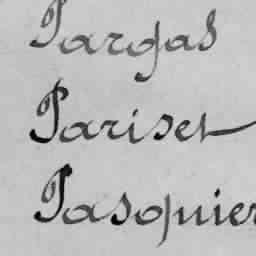 Pargas
Pariset
Pasquier